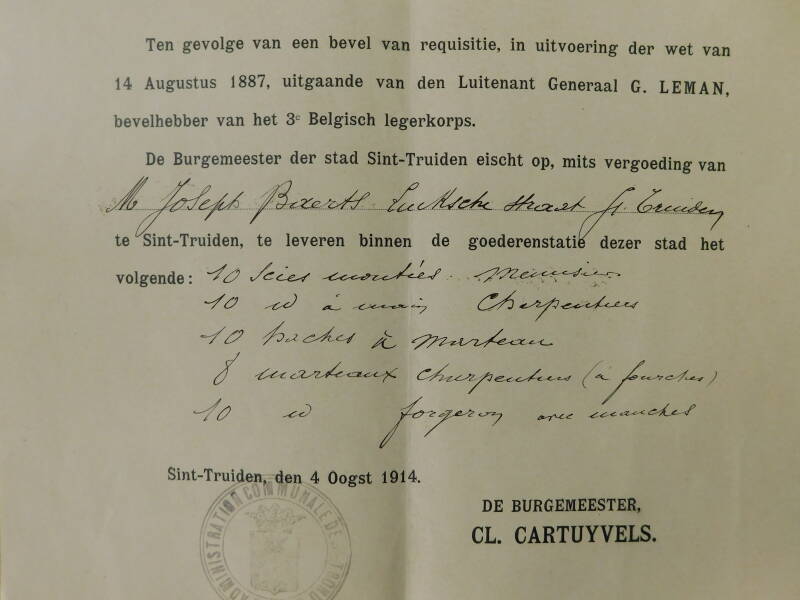 Ten gevolge van een bevel van requisitie, in uitvoering der wet van
14 Augustus 1887, uitgaande van den Luitenant Generaal G. LEMAN,
bevelhebber van het 3e Belgisch legerkorps.
De Burgemeester der stad Sint-Truiden eischt op, mits vergoeding van
M Joseph Baerts Luiksche straat St. Truiden
te Sint-Truiden, te leveren binnen de goederenstatie dezer stad het
volgende: 10 scies montées menuisier
10 id à main Charpentiers
10 haches à marteau
8 marteaux charpentiers (à fourches)
10 id forgeron avec manches
Sint-Truiden, den 4 Oogst 1914.
DE BURGEMEESTER,
CL. CARTUYVELS.
ADMINISTRATION COMMUNALE DE ST TROND